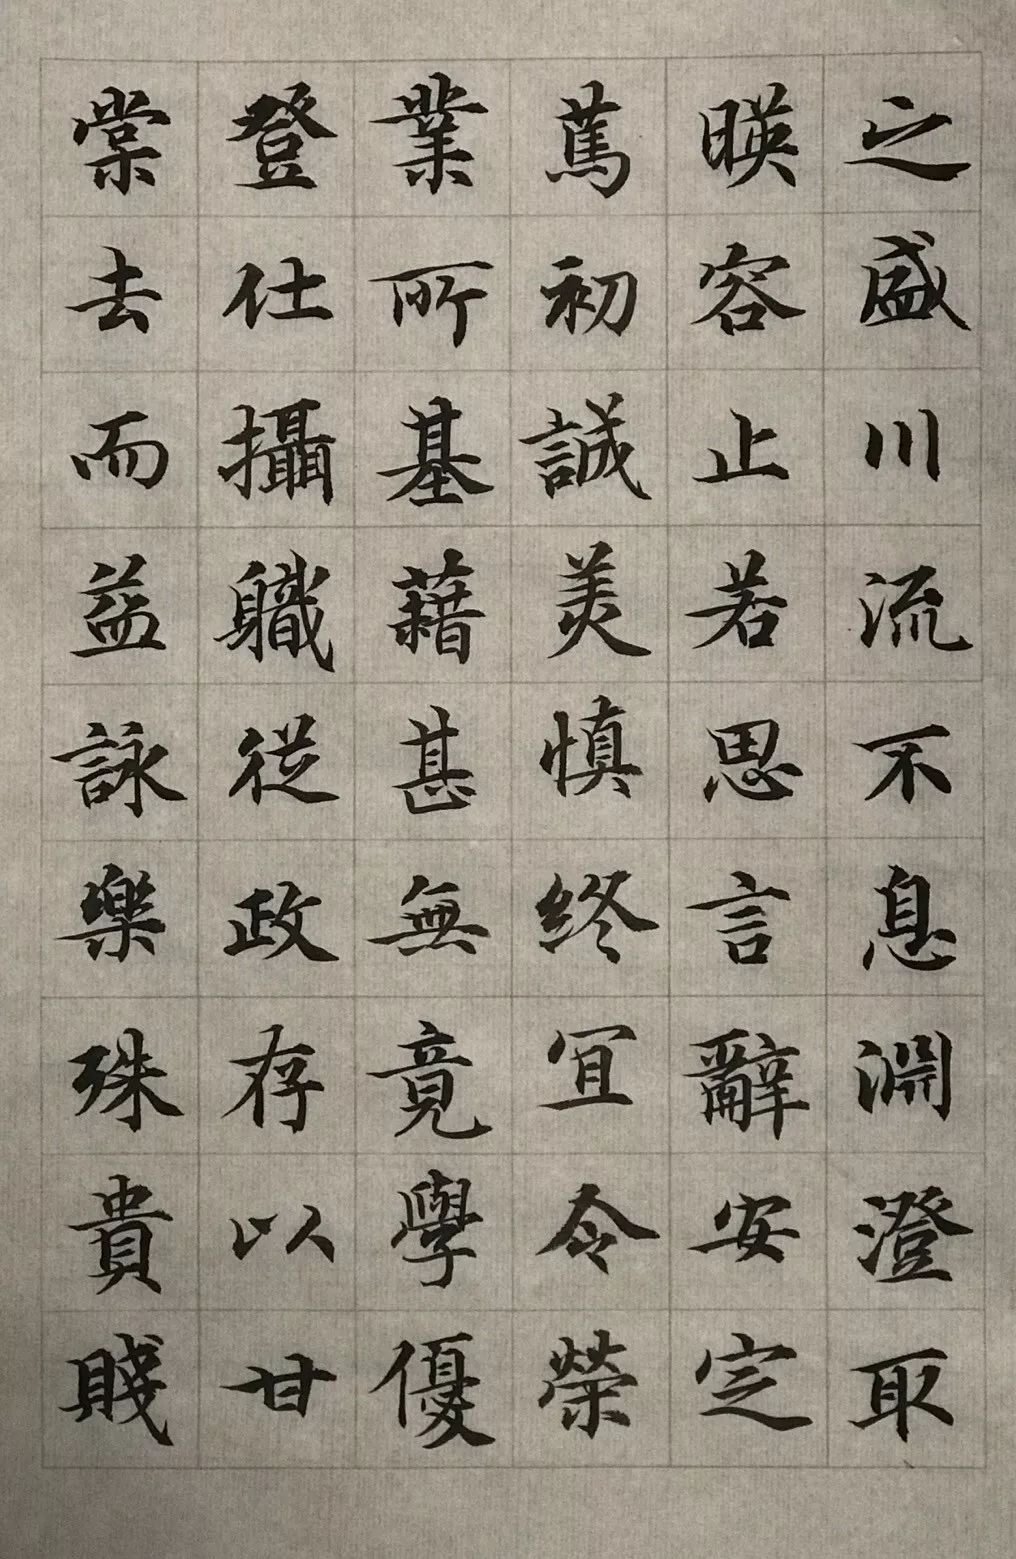 之盛川流不息淵澄取
暎容止若思言辭安定
萬初誠美慎終宜令榮
業所基藉甚無竟學優
登仕攝職從政存以甘
棠去而益詠樂殊貴賤